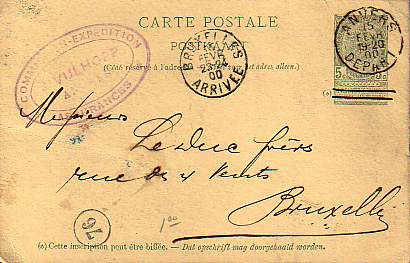 CARTE POSTALE
POSTKAART
(Côté réservé à l'adresse adres alleen.)
COMMISSION-EXPEDITION
ASSURANCES
BRUXELLES
15
FEVR
23-24
00
ARRIVÉE
ANVERS
15
FEVR
19-20
00
DEPART
5c
(a)
Messieurs
Le Duc frères
rue des 4 Vents
Bruxelles
76
1 00
(a) Cette inscription peut être biffée. — Dat opschrift mag doorgehaald worden.